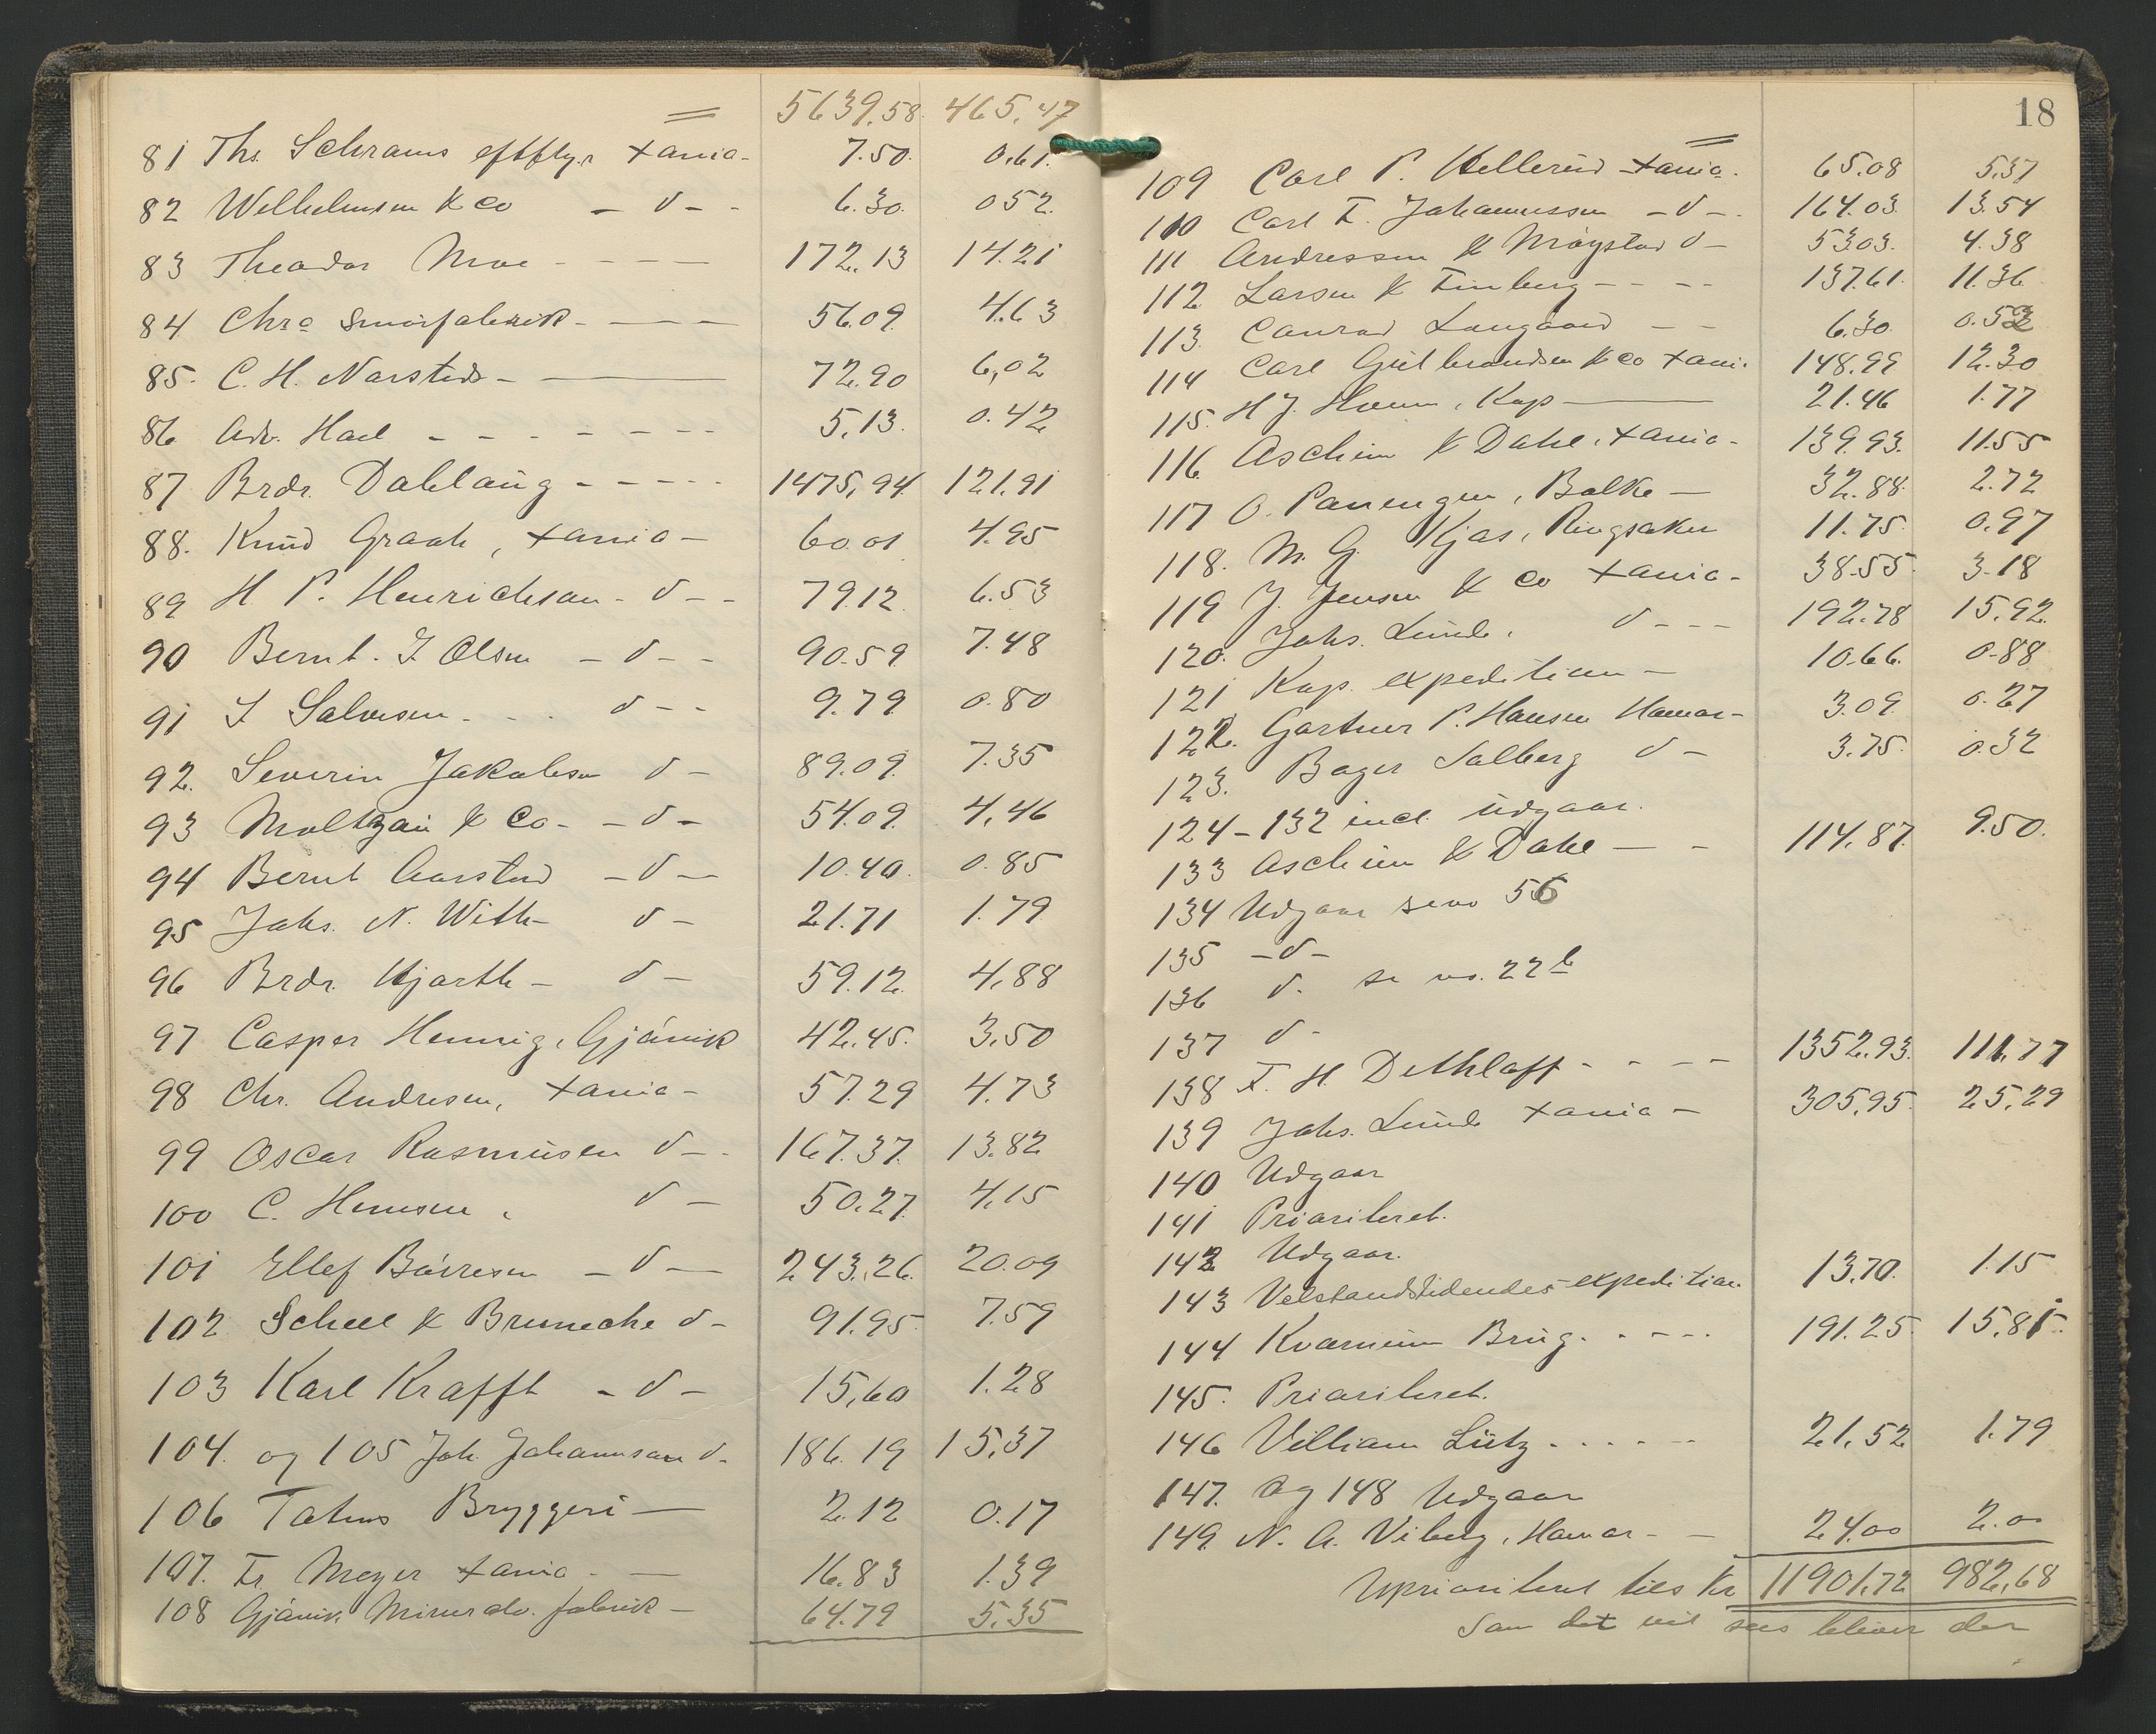 = 5639.58 465,47
81 Ths. Schrams eftflgr Xania - 7.50. 0.61.
82 Wilhelmsen & Co - d - - 6.30. 052.
83 Theodor Moe - - - - 172.13 14.21
84 Chra Smørfabrik - - - - 56.09. 4.63
85. C. H. Narsteds - - 72.90 6,02
86 Adv. Hael - - - - - - - 5,13. 0.42
87 Brdr. Dahlaug - - - - - 1475,94. 121.91
88. Knud Graah, Xania - 60.01 4.95
89 H. P. Henrichsen - d - - 79.12. 6.53
90 Bernt. J. Olsen - d - - 90.59 7.48
91 J. Salvesen - - . d - - 9.79. 0.80
92. Severin Jakobsen d - 89.09. 7.35
93 Moltzau & Co - - d - 54.09. 4,46
94 Bernt Aarstad - d - 10.40. 0.85
95 Johs. N. With - d - 21.71 1.79
96 Brdr. Kjørth - d - 59.12. 4,88
97 Casper Hennig, Gjøvik 42.45. 3,50
98 Chr. Andresen, Xania - 57.29 4.73
99 Oscar Rasmusen d - - 167.37. 13.82
100 C. Hemsen, d - 50.27. 4,15
101 Ellef Børresen - d - 243.26. 20.09
102 Scheel & Brunecke d - 91.95. 7.59
103 Karl Krafft - d - 15,60 1.28
104. og 105 Joh. Johannsen d. 186.19 15,37
106 Totens Bryggeri - 2.12 0.17
107. Fr. Meyer Xania - - 16.83 1.39
108 Gjøvik Mineralv. fabrik - 64.79 5,35
18
=
109 Carl P. Hellerud Xania. 65.08 5.37
110 Carl F. Johannessen - d - . 164.03. 13.54
111 Andressen & Møystad d - 53.03. 4.38
112 Larsen & Finberg - - - - 137.61. 11.36
113. Conrad Langaard - - 6.30 0.52
114 Carl Gulbrandsen & Co Xania. 148.99 12.30
115. H J. Hoeun, Kap - 21.46 1.77
116. Aschim & Dahl, Xania - 139.93. 11.55
117 O. Panengen, Balke - 32.88. 2.72
118. M. G. Kjos, Ringsaker 11.75. 0.97
119 J. Jensen & Co Xania - 38.55. 3.18
120. Johs. Lund. d - - - 192.78 15,92.
121 Kaps. expedition - 10.66. 0.88
122. Gartner P. Hansen Hamar - 3.09. 0.27
123. Bager Solberg d - 3.75. 0.32
124 - 132 incl. udgaar.
133 Aschim & Dahl - - 114,87. 9.50.
134 Udgaar se no 56
135 - d -
136 d. se no. 22 b
137 d -
138 F. H Dethloff - - - - 1352.93. 111,77
139 Johs. Lund Xania - 305,95. 25,29
140 Udgaar
141 Prioriteret.
142 Udgaar.
143 Velstandstidendes expedition 13.70. 1.15
144 Kvarnum Brug. - - - - 191.25. 15,81.
145. Prioriteret.
146 Villiam Lütz - - - - - - 21,52 1.79
147. og 148 Udgaar
149. N. A. Viberg, Hamar - - 24.00 2.00
Uprioriteret tils Kr 11901,72 982,68
Som det vil sees bliver der